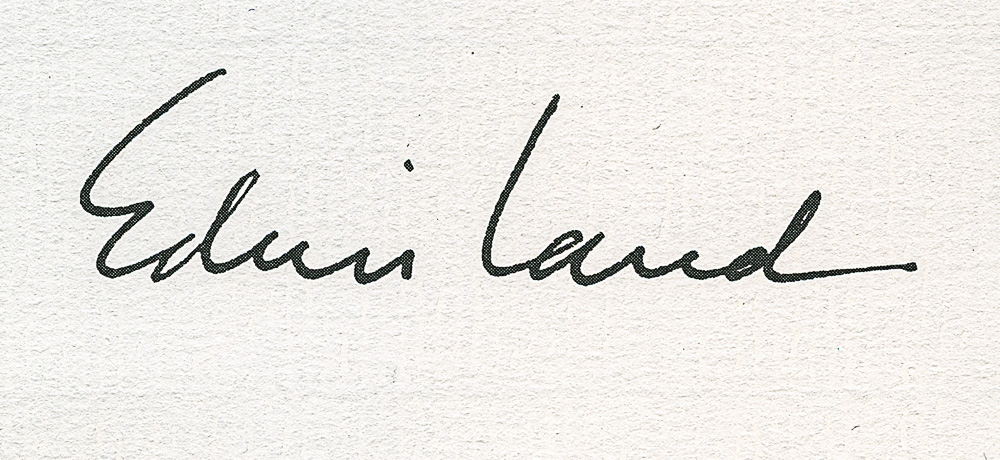 Edwin Land